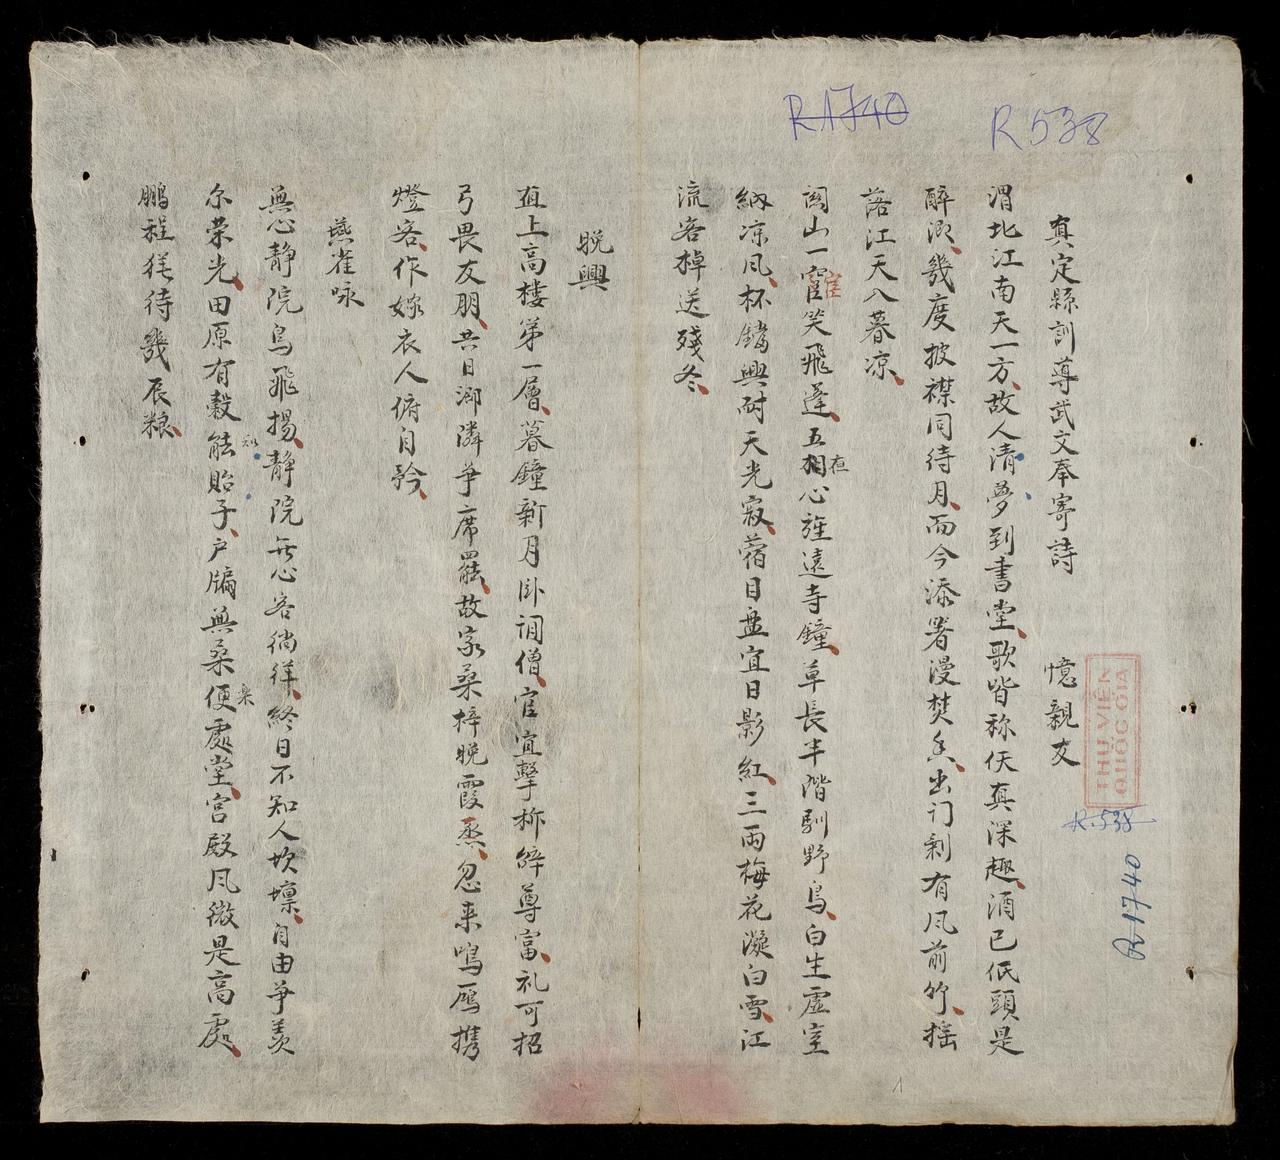 R1740
R538
真定縣訓導武文奉寄詩 憶親友
渭北江南天一方故人清夢到書堂歌皆称伕真深趣酒已低頭是
醉鄉幾度披襟同待月而今添署漫焚香出门剩有風前竹搖
落江天入暮凉
関山一窅笑飛蓬五相心旌遠寺鐘草長半階馴野鳥白生虛室
官
夜
納凉風杯鐺興耐天光寂蓿目盘宜日影紅三兩梅花凝白雪江
流客棹送殘冬
晚興
直上高樓第一層暮鐘新月卧詷僧官宜擊柝辞尊富礼可招
弓畏友朋共日鄉隣爭席罷故家桑梓晚霞蒸忽来鳴雁携
燈客作嫁衣人俯自矜
燕雀咏
無心静院鳥飛揚静院無心客徜徉終日不知人坎壈自由爭羡
尔荣光田原有穀能貽子户牖無桑便處堂宮殿風微是高處
来
鵬程猶待幾辰粮
THƯ VIỆN
QUỐC GIA
R.538
R1740
1